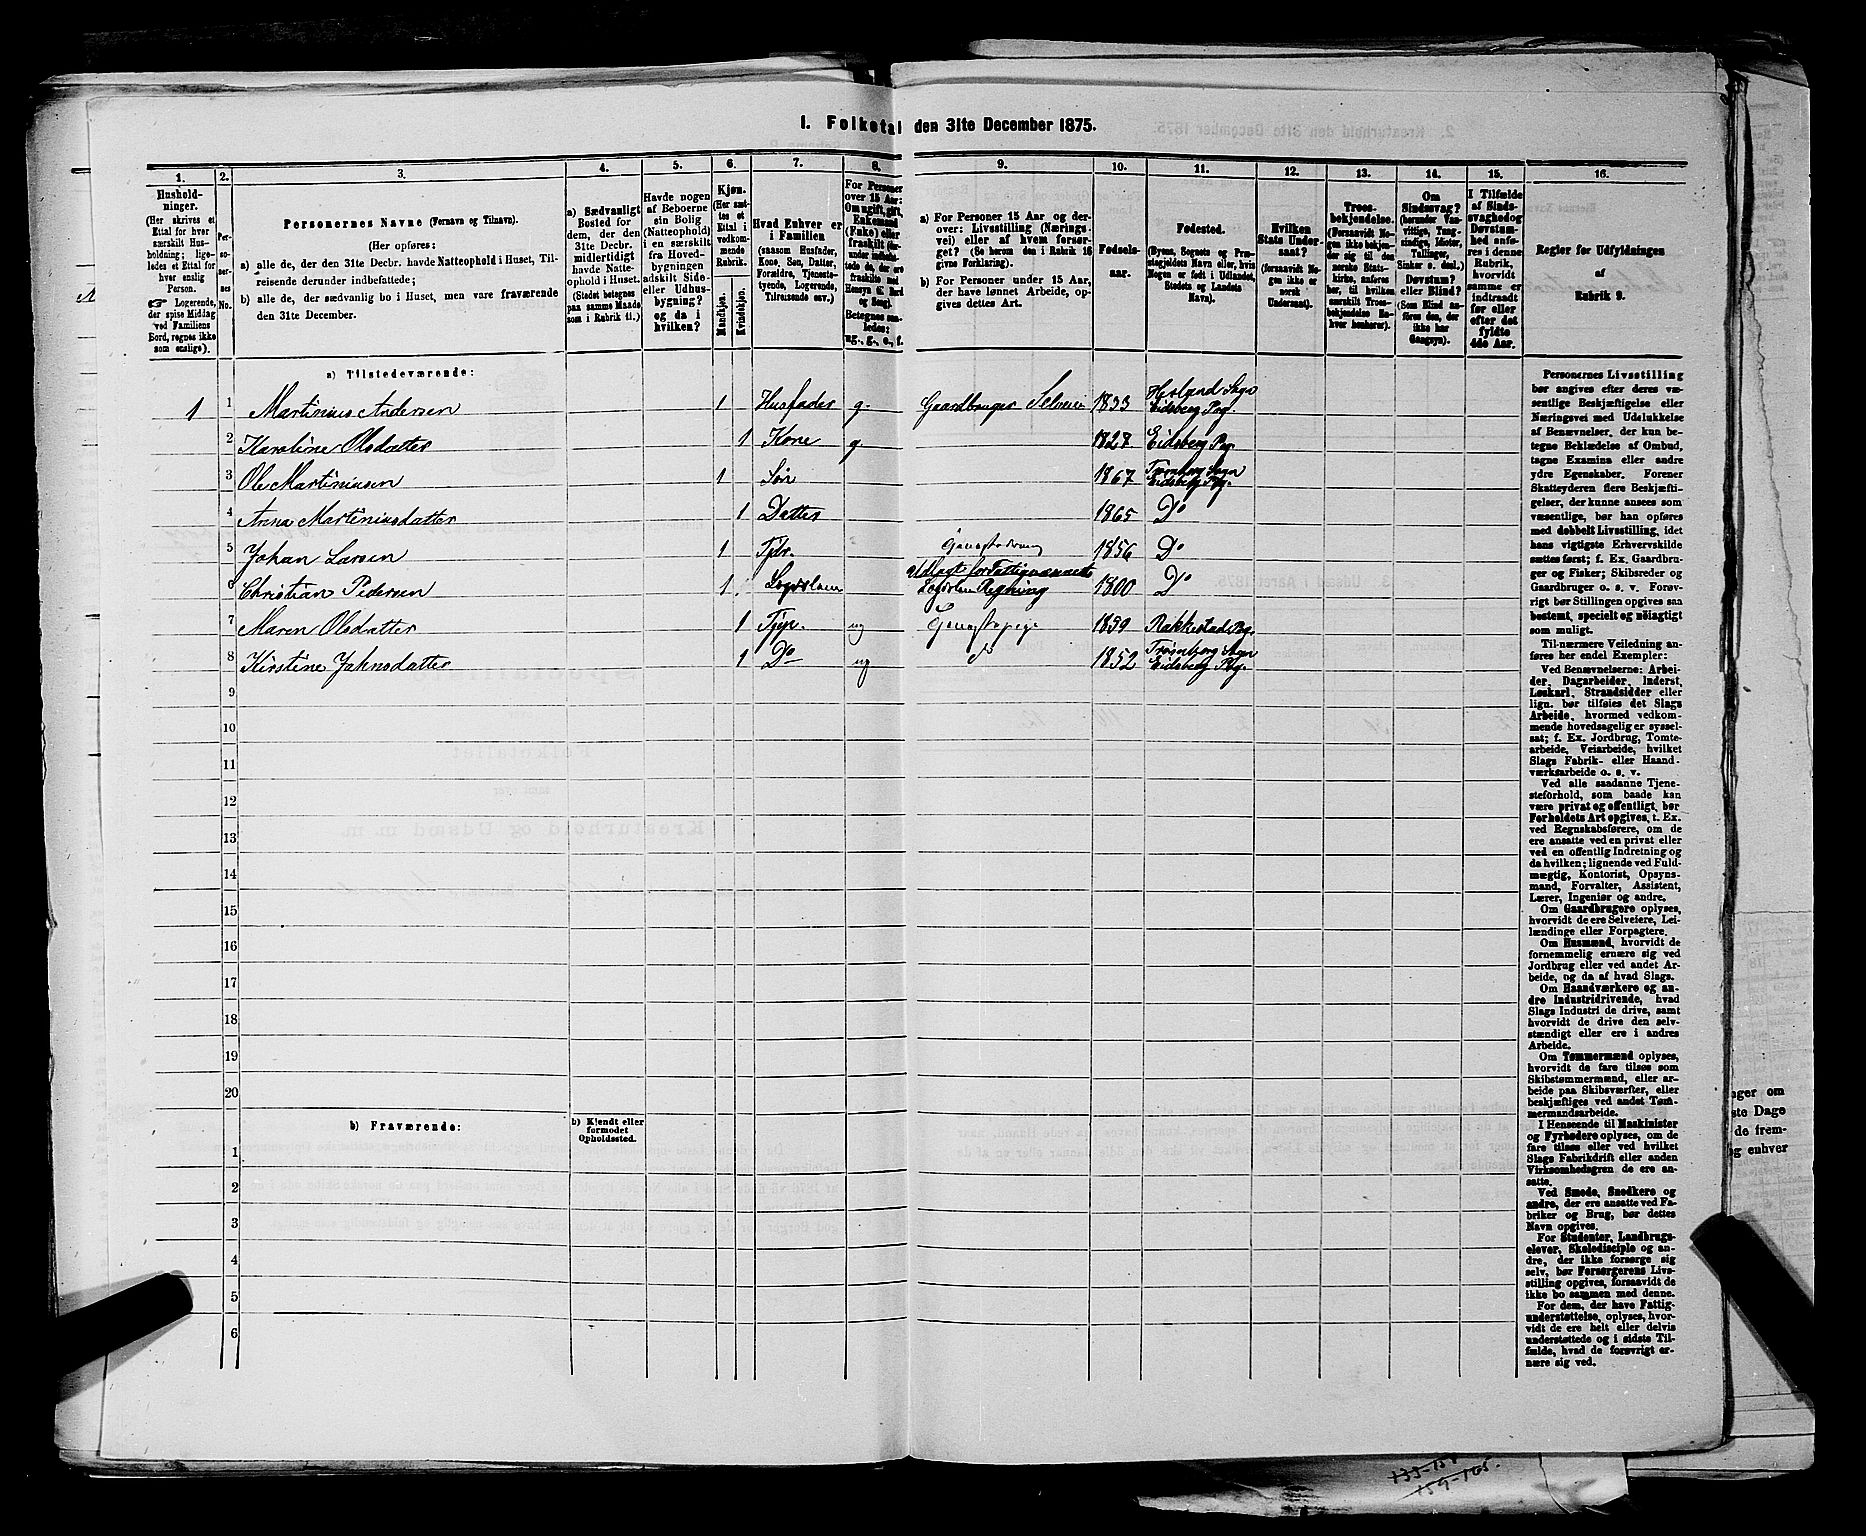 I. Folketal den 31te December 1875.
1. 2. 3. 4. 5. 6. 7. 8. 9. 10. 11. 12. 13. 14. 15. 16.
Hushold-
ninger.
(Her skrives et
Ettal for hver
særskilt Hus-
holdning; lige-
ledes et Ettal for
hver enslig
Person.
☞ Logerende,
der spise Middag
ved Familiens
Bord, regnes ikke
som enslige).
Per-
so-
ner-
nes
No.
Personernes Navne (Fornavn og Tilnavn).
(Her opføres:
a) alle de, der den 31te Decbr. havde Natteophold i Huset, Til-
reisende derunder indbefattede;
b) alle de, der sædvanlig bo i Huset, men vare fraværende
den 31te December.
a) Sædvanligt
Bosted for
dem, der den
31te Decbr.
midlertidigt
havde Natte-
ophold i Huset.
(Stedet betegnes
paa samme Maade
som i Rubrik 11.)
Havde nogen
af Beboerne
sin Bolig
(Natteophold)
i en særskilt
fra Hoved-
bygningen
adskilt Side-
eller Udhus-
bygning?
og da i
hvilken?
Kjøn.
(Her sæt-
tes et
Ettal i
vedkom-
mende
Rubrik.
Mandkjøn.
Kvindekjøn.
Hvad Enhver er
i Familien
(saasom Husfader,
Kone, Søn, Datter,
Forældre, Tjeneste-
tyende, Logerende,
Tilreisende osv.)
For Personer
over 15 Aar:
Om ugift, gift,
Enkemand
(Enke) eller
fraskilt
Betegnes saa-
ledes:
ug., g., e., f.
a) For Personer 15 Aar og der-
over: Livsstilling (Nærings-
vei) eller af hvem forsør-
get? (Se herom den i Rubrik 16
givne Forklaring).
b) For Personer under 15 Aar,
der have lønnet Arbeide, op-
gives dettes Art.
Fødsels-
aar.
Fødested.
(Byens, Sognets og Præ-
stegjeldets Navn eller, hvis
Nogen er født i Udlandet,
Stedets og Landets
Navn).
Hvilken
Stats Under-
saat?
(forsaavidt No-
gen ikke er
norsk
Undersaat).
Troes-
bekjendelse.
(Forsaavidt No-
gen ikke bekjen-
der sig til den
norske Stats-
kirke, anføres
her, til hvilken
særskilt Troes-
bekjendelse En-
hver henhører).
Om
Sindssvag?
(herunder Van-
vittige, Tung-
sindige, Idioter,
Tullinger,
Sinker o. desl.)
Døvstum?
eller Blind?
(Som Blind an-
føres den, der
ikke har
Gangsyn).
I Tilfælde
af Sinds-
svaghed og
Døvstum-
hed anfø-
res i denne
Rubrik,
hvorvidt
samme er
indtraadt
før eller
efter det
fyldte
4de Aar.
Regler for Udfyldningen
af
Rubrik 9.
a) Tilstedeværende:
1 1 Martinius Andersen 1 Husfader g. Gaardbruger Selveier 1833 Hæsland Sogn
Eidsberg Pg.
2 Karoline Olsdatter 1 Kone g 1827 Eidsberg Pg.
3 Ole Martiniusen 1 Søn 1867 Trømborg Sogn
Eidsberg Pg.
4 Anna Martiniusdatter 1 Datter 1865 Do
5 Johan Larsen 1 Tjdr. 1856 Do
6 Christian Pedersen 1 Udlagt for Fattigvæsenets
Regning 1800 Do
7 Maren Olsdatter 1 Tjp. ug 1859 Rakkestad Pg.
8 Kirstine Johnsdatter 1 Do ug 1852 Trømborg Sogn
Eidsberg Pg.
9
10
11
12
13
14
15
16
17
18
19
20
b) Fraværende:
b) Kjendt eller
formodet
Opholdssted.
1
2
3
4
5
6
Personernes Livsstilling
bør angives efter deres væ-
sentlige Beskjæftigelse eller
Næringsvei med Udelukkelse
af Benævnelser, der kun be-
tegne Beklædelse af Ombud,
tagne Examina eller andre
ydre Egenskaber. Forener
Skatteyderen flere Beskjæfti-
gelser, der kunne ansees som
væsentlige, bør han opføres
med dobbelt Livsstilling, idet
hans vigtigste Erhvervskilde
sættes først; f. Ex. Gaardbru-
ger og Fisker; Skibsreder og
Gaardbruger o. s. v. Forøv-
rigt bør Stillingen opgives saa
bestemt, specielt og nøiagtigt
som muligt.
Til nærmere Veiledning an-
føres her endel Exempler:
Ved Benævnelserne: Arbei-
der, Dagarbeider, Inderst,
Løskarl, Strandsidder eller
lign. bør tilføies det Slags
Arbeide, hvormed vedkom-
mende hovedsagelig er syssel-
sat; f. Ex. Jordbrug, Tomte-
arbeide, Veiarbeide, hvilket
Slags Fabrik- eller Haand-
værksarbeide o. s. v.
Ved alle saadanne Tjene-
steforhold, som baade kan
være privat og offentligt, bør
Forholdets Art opgives, t. Ex.
ved Regnskabsførere, om de
ere ansatte ved en privat eller
ved en offentlig Indretning og
da hvilken; lignende ved Fuld-
mægtig, Kontorist, Opsyns-
mand, Forvalter, Assistent,
Lærer, Ingeniør og andre.
Om Gaardbrugere oplyses,
hvorvidt de ere Selveiere, Lei-
lændinge eller Forpagtere.
Om Husmænd, hvorvidt de
fornemmelig ernære sig ved
Jordbrug eller ved andet Ar-
beide, og da af hvad Slags.
Om Haandværkere og an-
dre Industridrivende, hvad
Slags Industri de drive, samt
hvorvidt de drive den selv-
stændigt eller ere i andres
Arbeide.
Om Tømmermænd oplyses,
hvorvidt de fare tilsøs som
Skibstømmermænd, eller ar-
beide paa Skibsværfter, eller
beskjæftiges ved andet Tøm-
mermandsarbeide.
I Henseende til Maskinister
og Fyrbødere oplyses, om de
fare tilsøs eller ved hvilket
Slags Fabrikdrift eller anden
Virksomhedsgren de ere an-
satte.
Ved Smede, Snedkere og
andre, der ere ansatte ved Fa-
briker og Brug, bør dettes
Navn opgives.
For Studenter, Landbrugs-
elever, Skoledisciple og an-
dre, der ikke forsørge sig
selv, bør Forsørgerens Livs-
stilling opgives, forsaavidt de
ikke bo sammen med denne.
For dem, der have Fattig-
understøttelse, oplyses, hvor-
vidt de ere helt eller delvis
understøttede og i sidste Til-
fælde, hvad de forøvrigt er-
nære sig ved.
159-165.